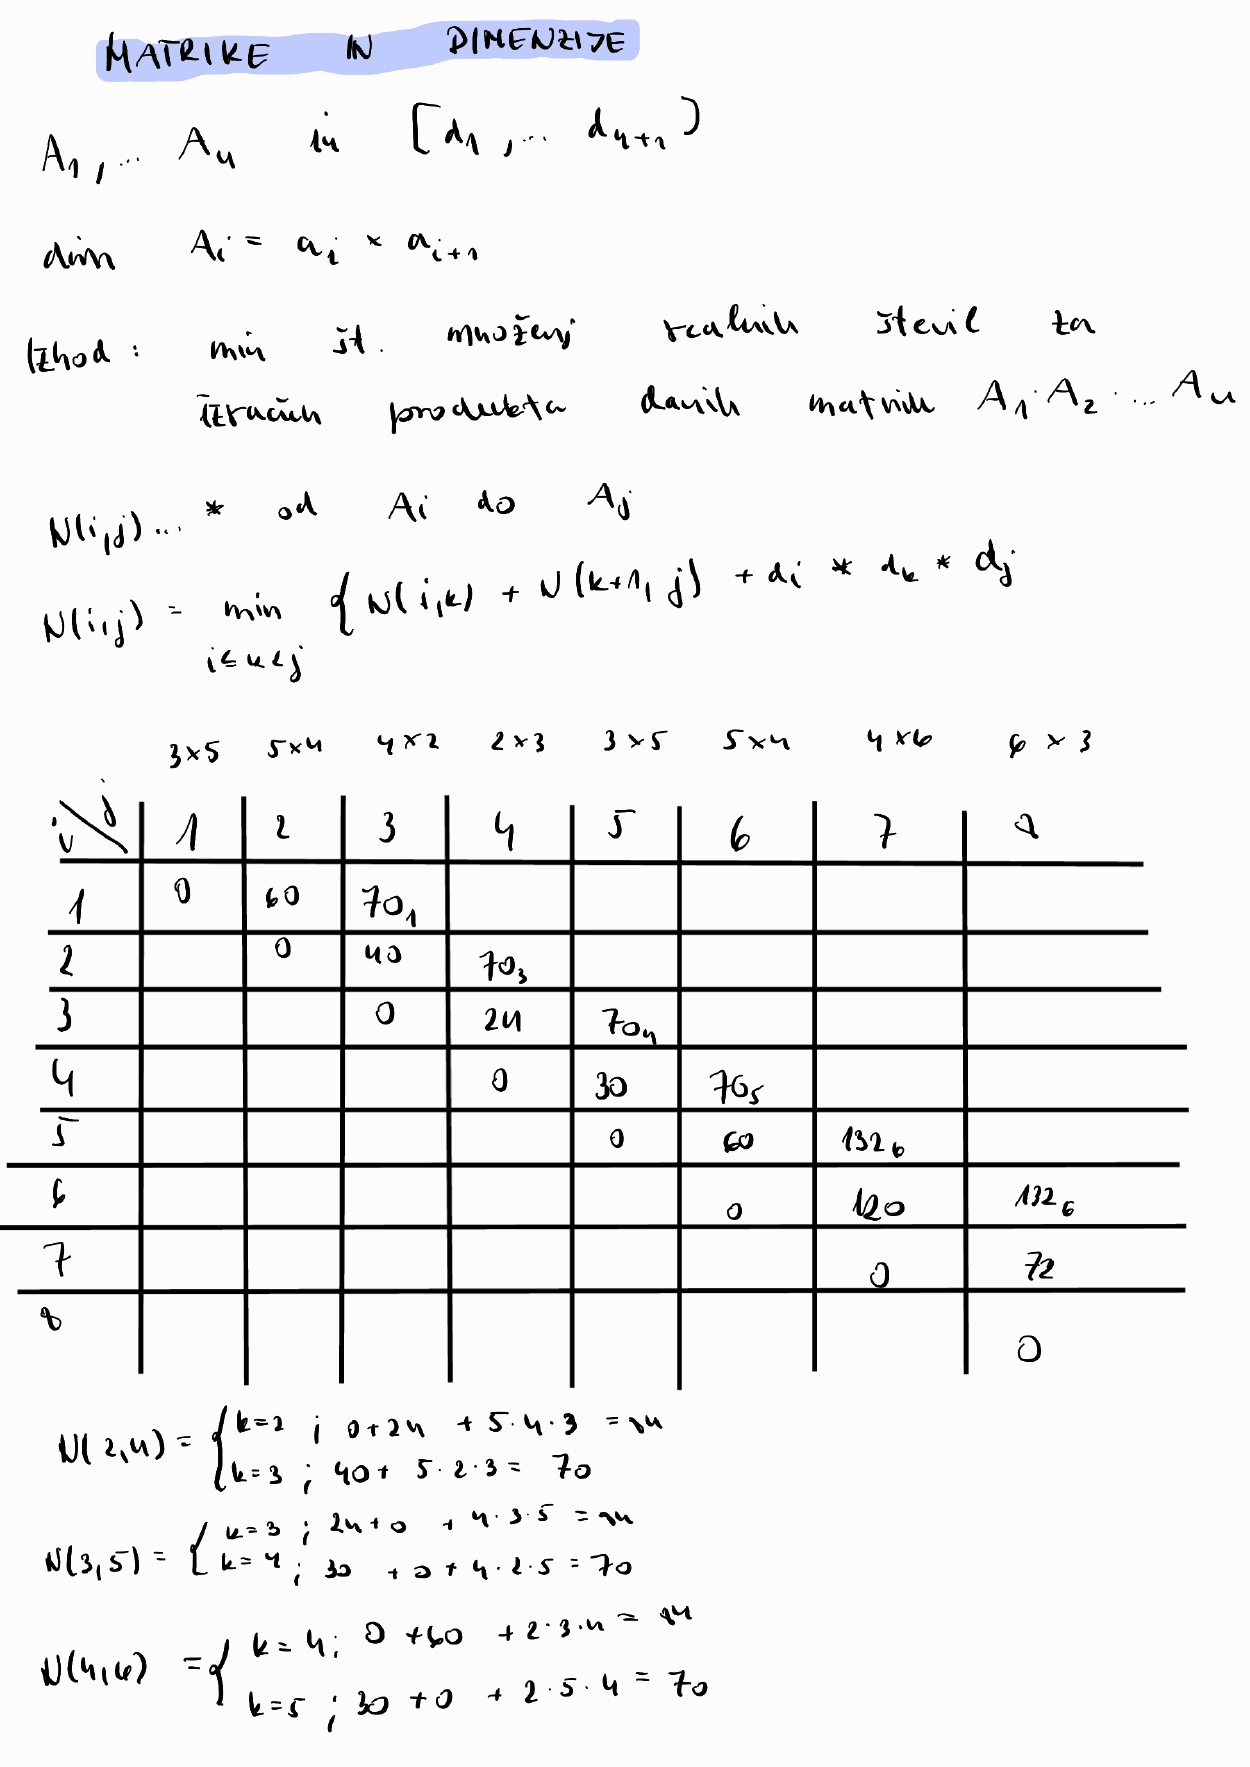 MATRIKE IN DIMENZIJE
A₁, ... Aₙ in [d₁, ... dₙ₊₁]
dim Aᵢ = aᵢ × aᵢ₊₁
Izhod : min št. množenj realnih števil za
izračun produkta danih matrik A₁ · A₂ · ... Aₙ
N(i,j) ... * od Ai do Aj
N(i,j) = min { N(i,k) + N(k+1, j) + di * dk * dj
i≤k<j
3×5 5×4 4×2 2×3 3×5 5×4 4×6 6×3
i\j 1 2 3 4 5 6 7 8
1 0 60 70₁
2 0 40 70₃
3 0 24 70₄
4 0 30 70₅
5 0 60 132₆
6 0 120 132₆
7 0 72
8 0
N(2,4) = { k=2 ; 0+24 + 5·4·3 = 84
k=3 ; 40+ 5·2·3 = 70
N(3,5) = { k=3 ; 24+0 + 4·3·5 = 84
k=4 ; 30 +0+ 4·2·5 = 70
N(4,6) = { k=4; 0+60 +2·3·4 = 84
k=5 ; 30 +0 + 2·5·4 = 70